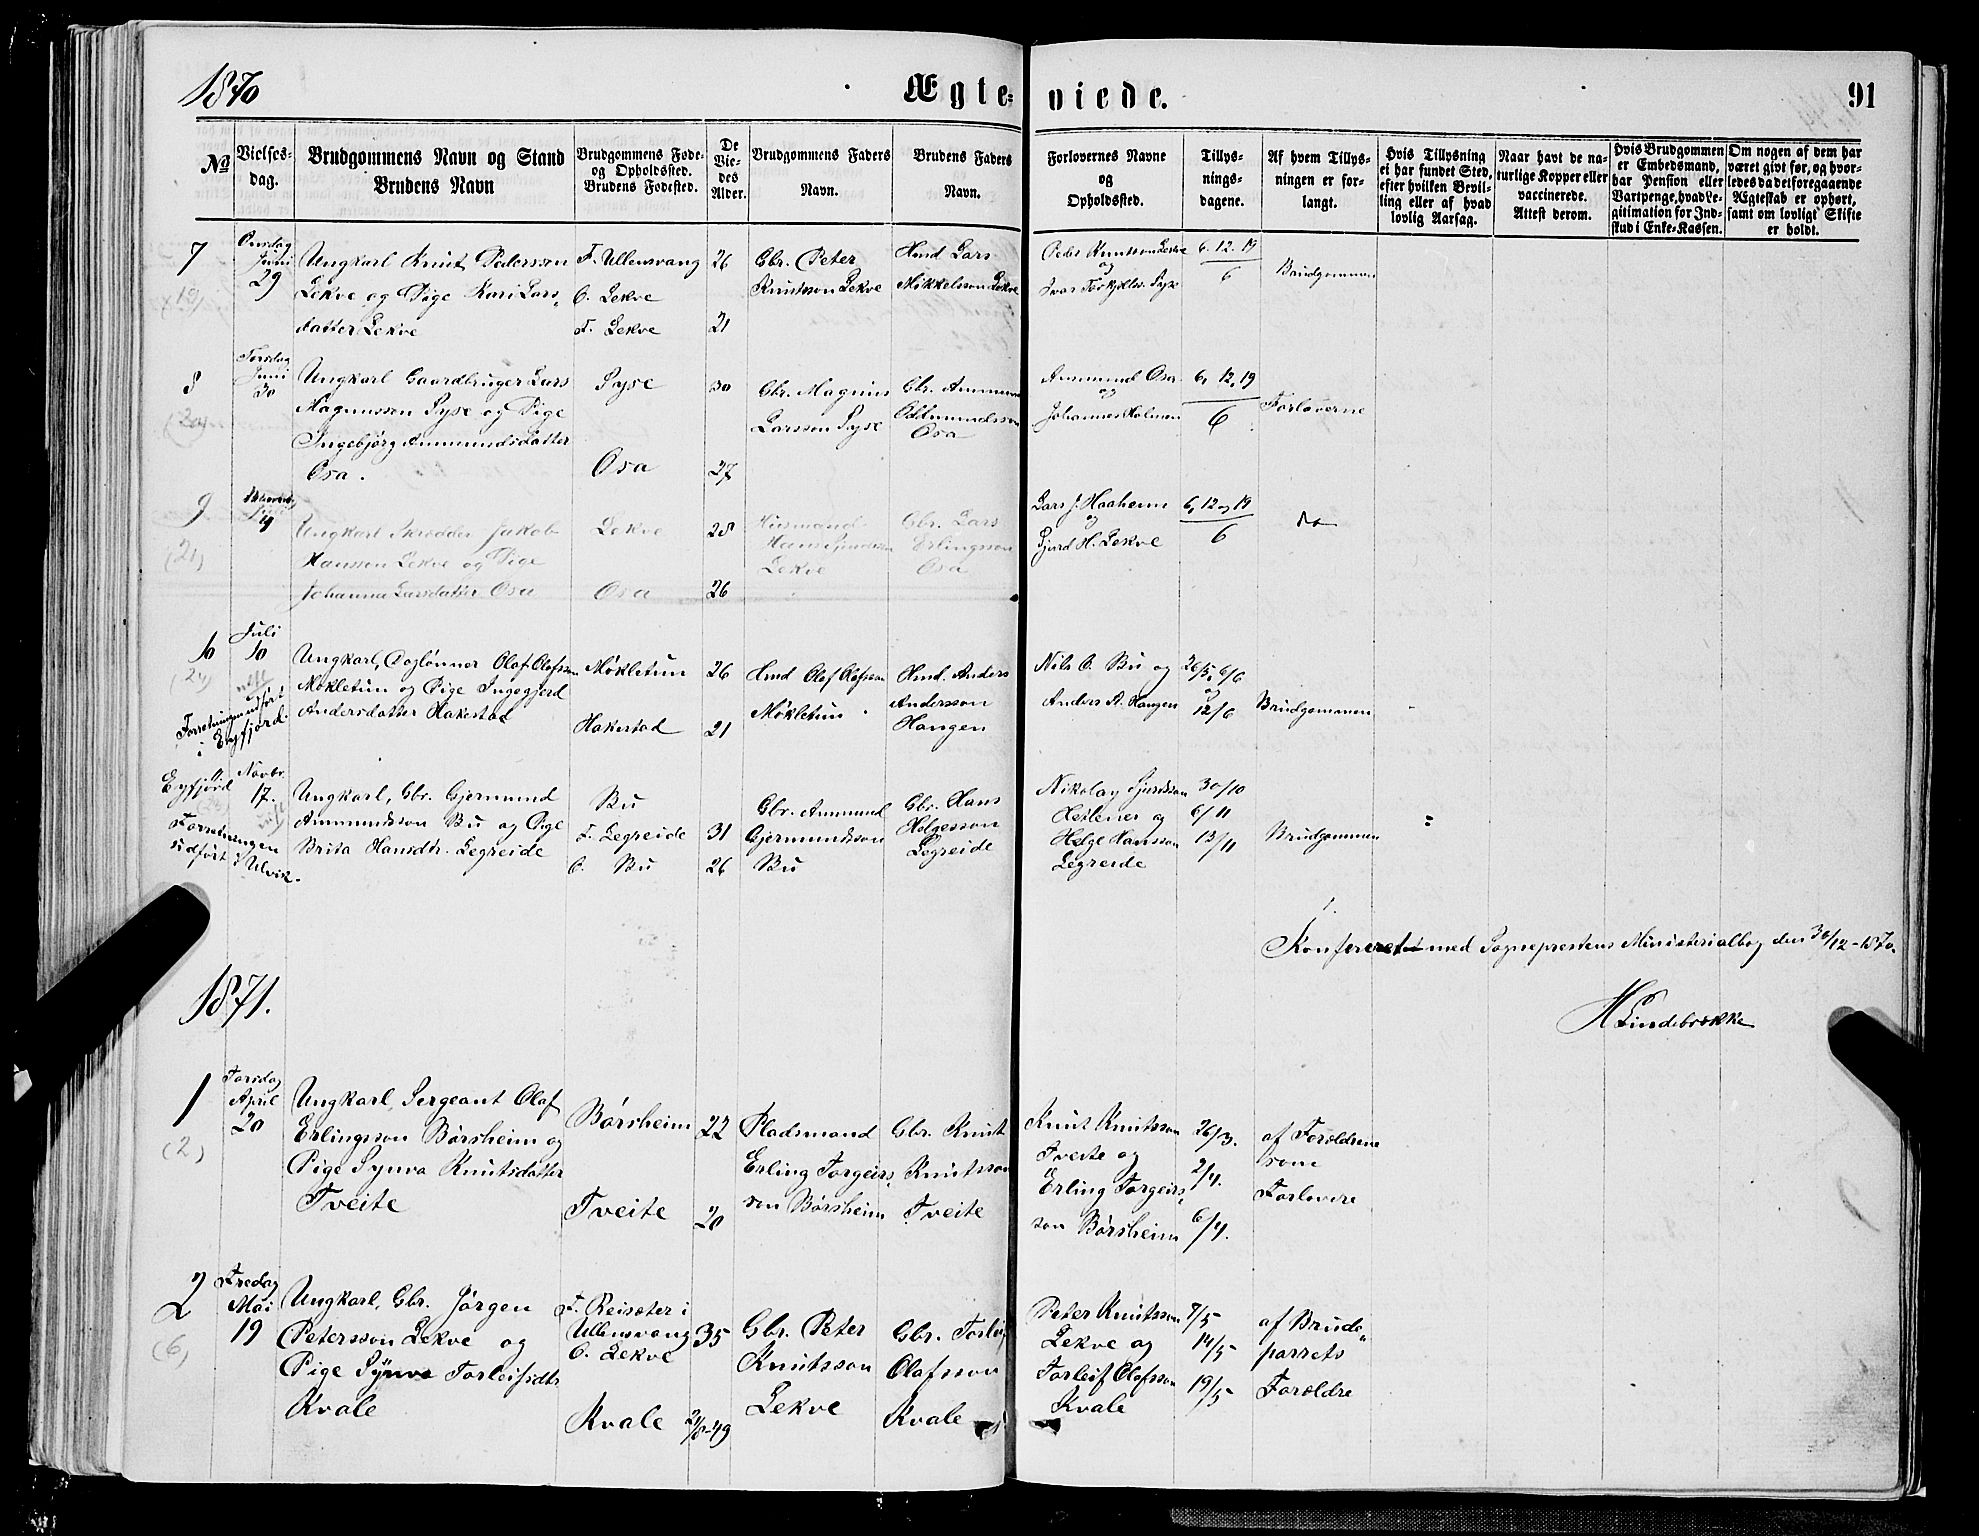 1870
Ægteviede.
91
No
Vielsesdag.
Brudgommens Navn og Stand
Brudens Navn
Brudgommens Føde-
og Opholdssted.
Brudens Fødested.
De
Vie-
des
Alder.
Brudgommens Faders
Navn.
Brudens Faders
Navn.
Forlovernes Navne
og
Opholdssted.
Tillys-
nings-
dagene.
Af hvem Tillys-
ningen er for-
langt.
Hvis Tillysning
ei har fundet Sted,
efter hvilken Bevil-
ling eller af hvad
lovlig Aarsag.
Naar havt de na-
turlige Kopper eller
vaccinerede.
Attest derom.
Hvis Brudgommen
er Embedsmand,
har Pension eller
Vartpenge, hvad Le-
gitimation for Ind-
skud i Enke-Kassen.
Om nogen af dem har
været givt før, og hvor-
ledes da det foregaaende
Ægteskab er ophørt,
samt om lovligt Skifte
er holdt.
7
Onsdag
Juni
29
Ungkarl Knut Pederssen
Lekve og Pige Kari Lars-
datter Lekve
F. Ullensvang
O. Lekve
F. Lekve
26
21
Gbr. Peter
Knutsson Lekve
Hmd Lars
Mikkelsson Lekve
Peder Knutsson Lekve
og
Ivar Torkjelss. Syse
6. 12. 19
6
Brudgommen
8
(20)
Torsdag
Juni
30
Ungkarl Gaardbruger Lars
Magnussen Syse og Pige
Ingebjørg Ammundsdatter
Osa.
Syse
Osa
30
27
Gbr. Magnus
Larsson Syse
Gbr. Ammund
Oddmundsson
Osa
Ammund Osa
og
Johannes Holmen
6, 12, 19
6
Forloverne
9
(21)
4
Ungkarl Skrædder Jakob
Hanssen Lekve og Pige
Johanna Larsdatter Osa
Lekve
Osa
28
26
Husmand
Hans
Lekve
Gbr. Lars
Erlingsson
Osa
Lars J. Haaheim
og
Sjurd H. Lekve
6, 12 og 19
6
do
10
(24)
Juli
10
Forretningen udført
i Eyfjord.
Ungkarl, Daglønner Olaf Olafsson
Møkletun og Pige Ingegjerd
Andersdatter Hakestad
Møkletun
Hakestad
26
21
Hmd Olaf Olafsson
Møkletun
Hmd. Anders
Andersson
Haugen
Nils O. Bu og
Anders A. Haugen
26/5, 6/6
og
12/6
Brudgommen
Eyfjord
Forretningen
udført i Ulvik.
Novbr.
17.
Ungkarl, Gbr. Gjermund
Ammundsson Bu og Pige
Brita Hansdtr. Legreide
Bu
F. Legreide
O. Bu
31
26
Gbr. Ammund
Gjermundsson
Bu
Gbr. Hans
Helgesson
Legreide
Nikolay Sjurdsson
Heilener og
Helge Hansson
Legreide
30/10
6/11
13/11
Brudgommen
Konfereret med Sogneprestens Ministerialbog den 30/12-1870.
H Lindebrække
1871.
1
(2)
Torsdag
April
20
Ungkarl, Sergeant Olaf
Erlingsson Børsheim og
Pige Synva Knutsdatter
Tveite
Børsheim
Tveite
22
20
Pladsmand
Erling Torgeirs-
son Børsheim
Gbr. Knut
Knutsson
Tveite
Knut Knutsson
Tveite og
Erling Torgeirs-
son Børsheim
26/3.
2/4.
6/4.
af Forældrene
som
Forlovere
2
(6)
Fredag
Mai
19
Ungkarl, Gbr. Jørgen
Petersson Lekve og
Pige Synva Torleifsdtr
Kvale
F. Reisæter i
Ullensvang
O. Lekve
Kvale
35
2/8-49
Gbr. Peter
Knutsson
Lekve
Gbr. Torleif
Olafsson
Kvale
Peter Knutsson
Lekve og
Torleif Olafsson
Kvale
7/5
14/5
19/5
af Brude-
parrets
Forældre